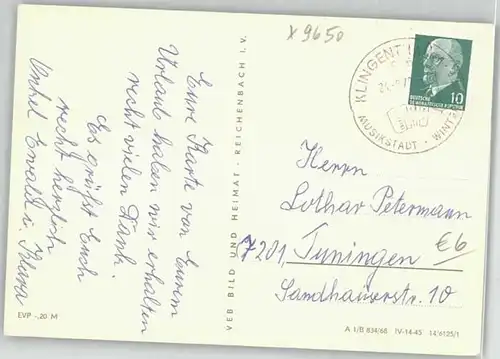 x 9650
Eure Karte von Eurem
Urlaub haben wir erhalten
recht vielen Dank.
Es grüßt Euch
recht herzlich
Onkel Ewald u.
EVP -,20 M
VEB BILD UND HEIMAT · REICHENBACH I. V.
KLINGENT
MUSIKSTADT · WINTER
DEUTSCHE
DEMOKRATISCHE REPUBLIK
10
Herrn
Lothar Petermann
7201, Tuningen
€6
Sandhauserstr. 10
A I/B 834/68 IV-14-45 14/6125/1